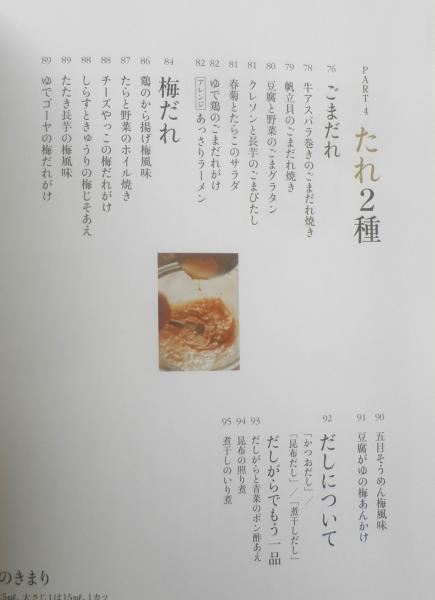 PART 4
たれ2種
76 ごまだれ
78 牛アスパラ巻きのごまだれ焼き
79 帆立貝のごまだれ焼き
80 豆腐と野菜のごまグラタン
81 クレソンと長芋のごまびたし
81 春菊とたらこのサラダ
82 ゆで鶏のごまだれがけ
82 アレンジ あっさりラーメン
84 梅だれ
86 鶏のから揚げ梅風味
87 たらと野菜のホイル焼き
88 チーズやっこの梅だれがけ
88 しらすときゅうりの梅じそあえ
89 たたき長芋の梅風味
89 ゆでゴーヤの梅だれがけ
90 五目そうめん梅風味
91 豆腐がゆの梅あんかけ
92 だしについて
「かつおだし」/
「昆布だし」/「煮干しだし」
だしがらでもう一品
93 だしがらと青菜のポン酢あえ
94 昆布の照り煮
95 煮干しのいり煮
のきまり
5ml、大さじ1は15ml、1カッ